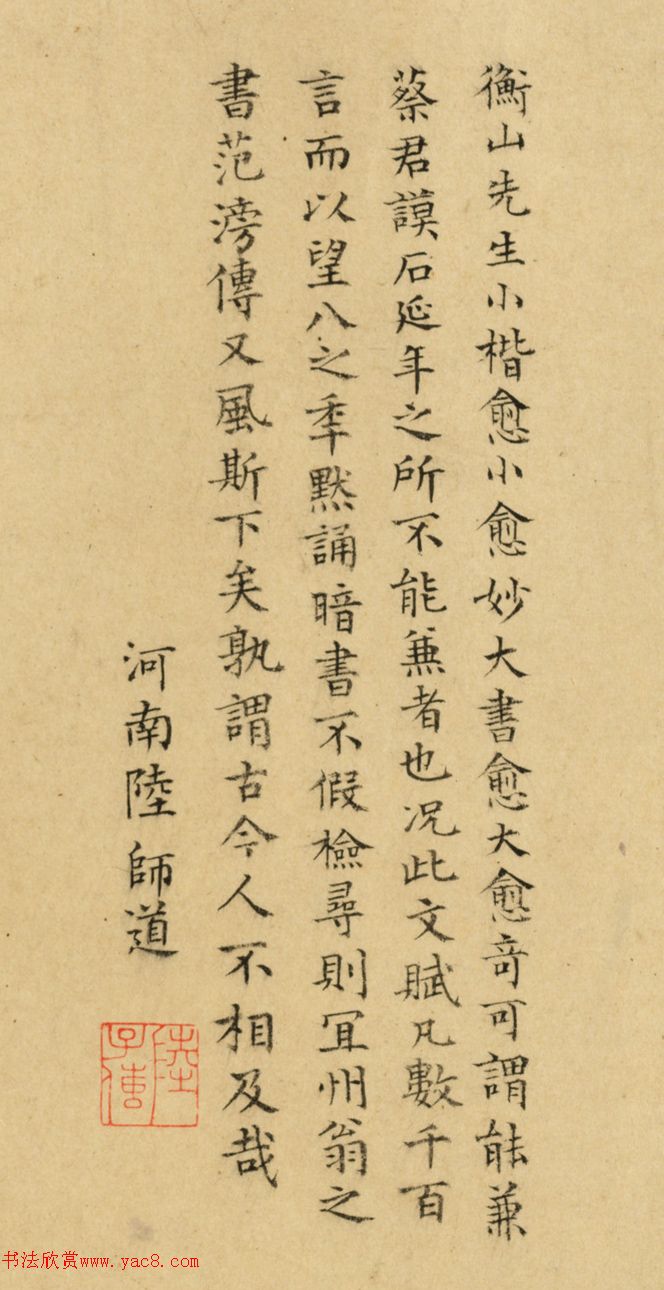 衡山先生小楷愈小愈妙大書愈大愈奇可謂能兼
蔡君謨石延年之所不能兼者也况此文賦凡數千百
言而以望八之年默誦暗書不假檢尋則宜州翁之
書范滂傳又風斯下矣孰謂古今人不相及哉
河南陸師道
陸
子傳
书法欣赏www.yac8.com